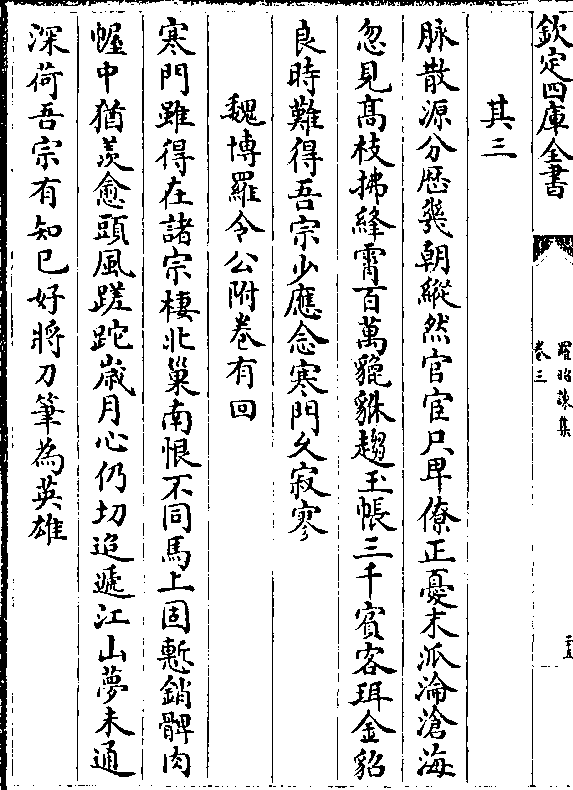 欽定四庫全書
羅昭諫集
卷三
其三
脉散源分歴幾朝縱然官宦只卑僚正憂末派淪滄海
忽見髙枝拂絳霄百萬貔貅趨玉帳三千賓客珥金貂
良時難得吾宗少應念寒門乆寂寥
魏博羅令公附卷有回
寒門雖得在諸宗棲北巢南恨不同馬上固慙銷髀肉
幄中猶羨愈頭風蹉跎歳月心仍切迢遞江山夢未通
深荷吾宗有知已好將刀筆為英雄